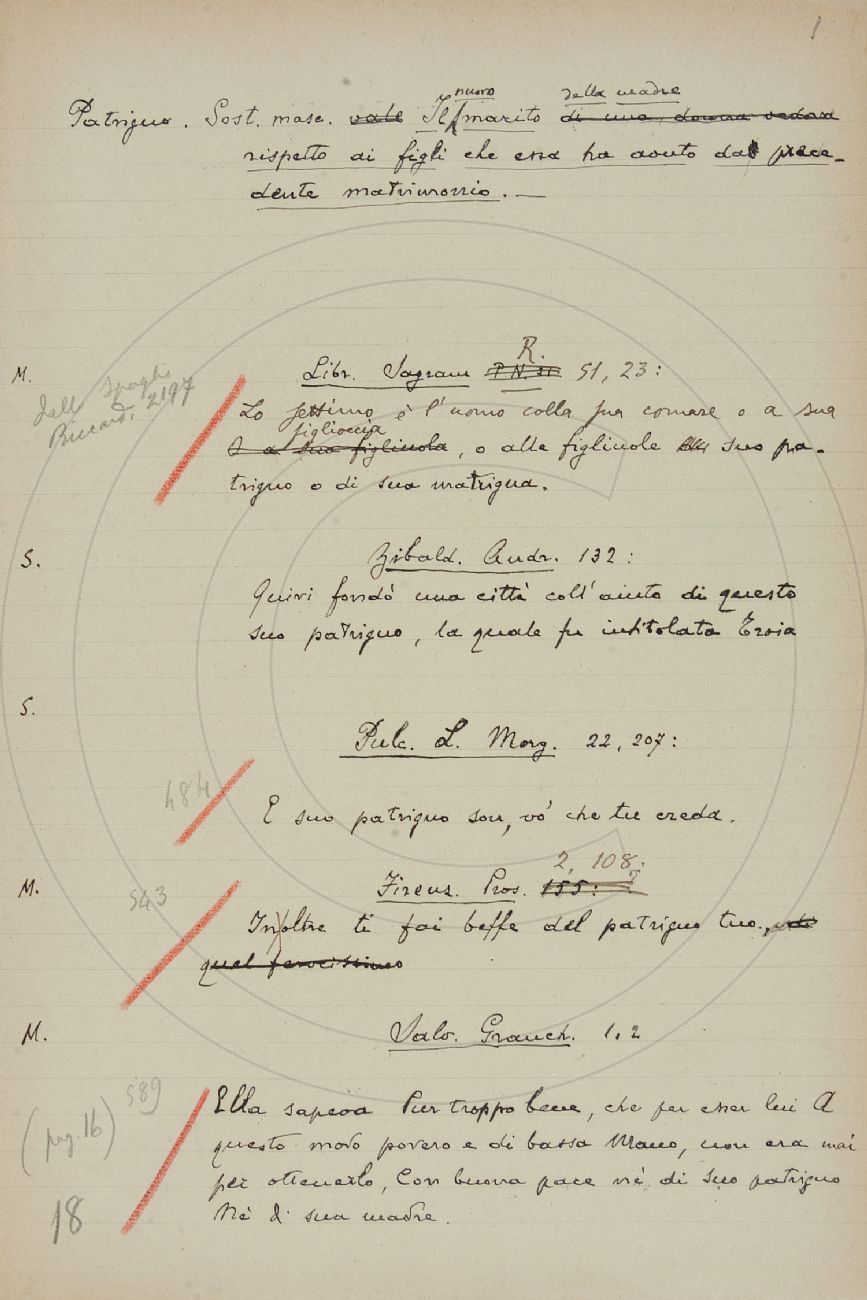 1
nuovo della madre
Patrigno. Sost. masc. vale Il marito di una donna vedova
rispetto ai figli che essa ha avuto dal prece-
dente matrimonio. —
R.
M. Libr. Sagram 51, 23:
dallo spoglio
Riccard. 2197
Lo settimo è l'uomo colla sua comare o a sua
figlioccia
o a sua figliuola, o alle figliuole suo pa-
trigno o di sua matrigna.
S. Zibald. Andr. 132:
Quivi fondò una città coll'aiuto di questo
suo patrigno, la quale fu intitolata Troia
S.
Pulc. L. Morg. 22, 207:
484
E suo patrigno son, vo' che tu creda.
2, 108:
M. Firenz. Pros. 155:
543
Inoltre ti fai beffe del patrigno tuo.,
quel ferocissimo
M. Salv. Granch. 1.2
589
Ella sapeva Pur troppo bene, che per esser lui A
(pag. 16) questo modo povero e di bassa Mano, non era mai
per ottenerlo, Con buona pace né di suo patrigno
18 Né di sua madre.